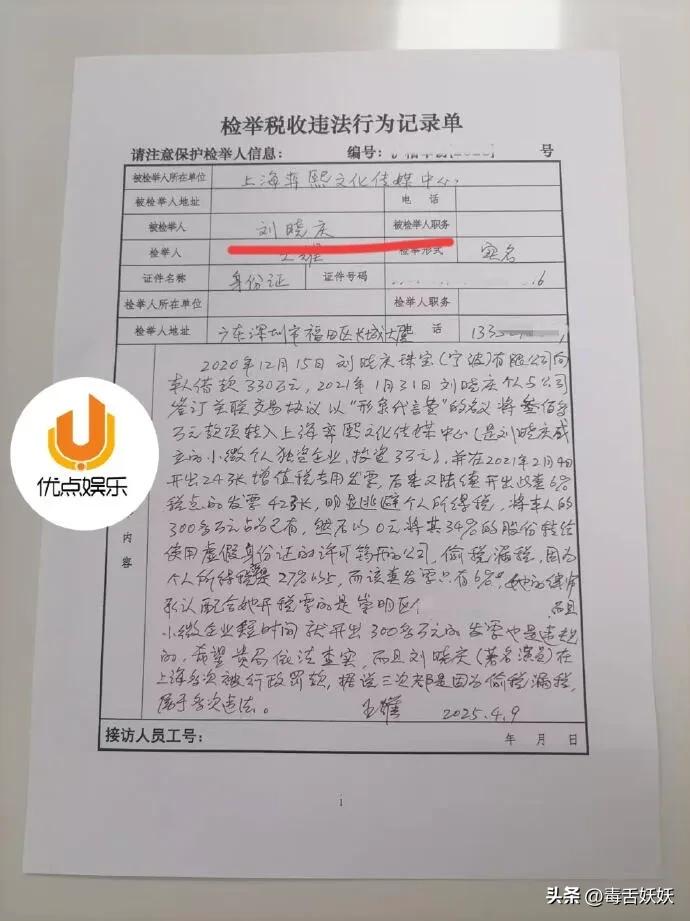 检举税收违法行为记录单
请注意保护检举人信息： 编号： 号
被检举人所在单位 上海弈熙文化传媒中心
被检举人地址 电 话
被检举人 刘晓庆 被检举人职务
检举人 检举形式 实名
证件名称 身份证 证件号码 16
检举人所在单位 检举人职务
检举人地址 广东深圳市福田区长城大厦 话 133
2020年12月15日刘晓庆珠宝(宁波)有限公司向
本人借款330万元，2021年1月31日刘晓庆个人与公司
签订关联交易协议以"形象代言费"的名义将叁佰多
万元款项转入上海弈熙文化传媒中心(是刘晓庆成
立的小微个人独资企业，投资3万元)，并在2021年2月4日
开出24张增值税专用发票，后来又陆续开出此类6%
税点的发票42张，明显逃避个人所得税，将本人的
300多万元占为己有，然后以0元将其34%的股份转给
使用虚假身份证的许可筠开的公司，偷税漏税，因为
个人所得税是27%以上，而该类发票只有6%，她的律师
承认配合她开税票的是崇明区 而且
小微企业短时间就开出300多万元的发票也是违规
的，希望贵局依法查实，而且刘晓庆(著名演员)在
上海多次被行政罚款，据说三次都是因为偷税漏税，
属于多次违法。 王雄 2025.4.9
内
容
接访人员工号： 年 月 日
1
优点娱乐
头条 @毒舌妖妖